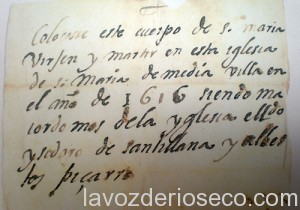 Colocose este cuerpo de s. maria
Virjen y martir en esta iglesia
de s. Maria de media villa en
el año de 1616 siendo ma
iordomos de la yglesia el ldo
ysidoro de santillana y alber
tos piçarro
lavozderioseco.com